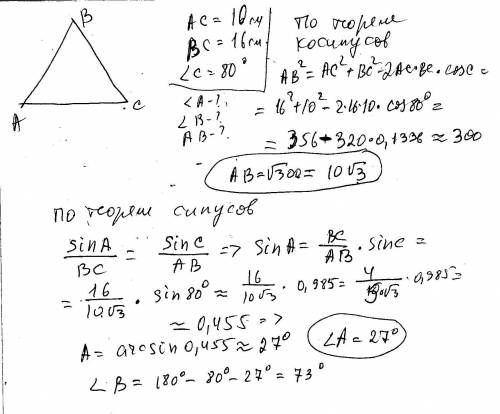 B
A
C
AC = 10 см
BC = 16 см
∠C = 80°
∠A - ?
∠B - ?
AB - ?
По теореме
косинусов
AB² = AC² + BC² - 2AC·BC·cosC =
= 16² + 10² - 2·16·10·cos80° =
= 356 - 320·0,1736 ≈ 300
AB = √300 = 10√3
По теореме синусов
sinA/BC = sinC/AB => sinA = BC/AB · sinC =
= 16/10√3 · sin80° ≈ 16/10√3 · 0,985 = 4/√3 · 0,985 =
≈ 0,455 =>
A = arcsin0,455 ≈ 27°
∠A = 27°
∠B = 180° - 80° - 27° = 73°